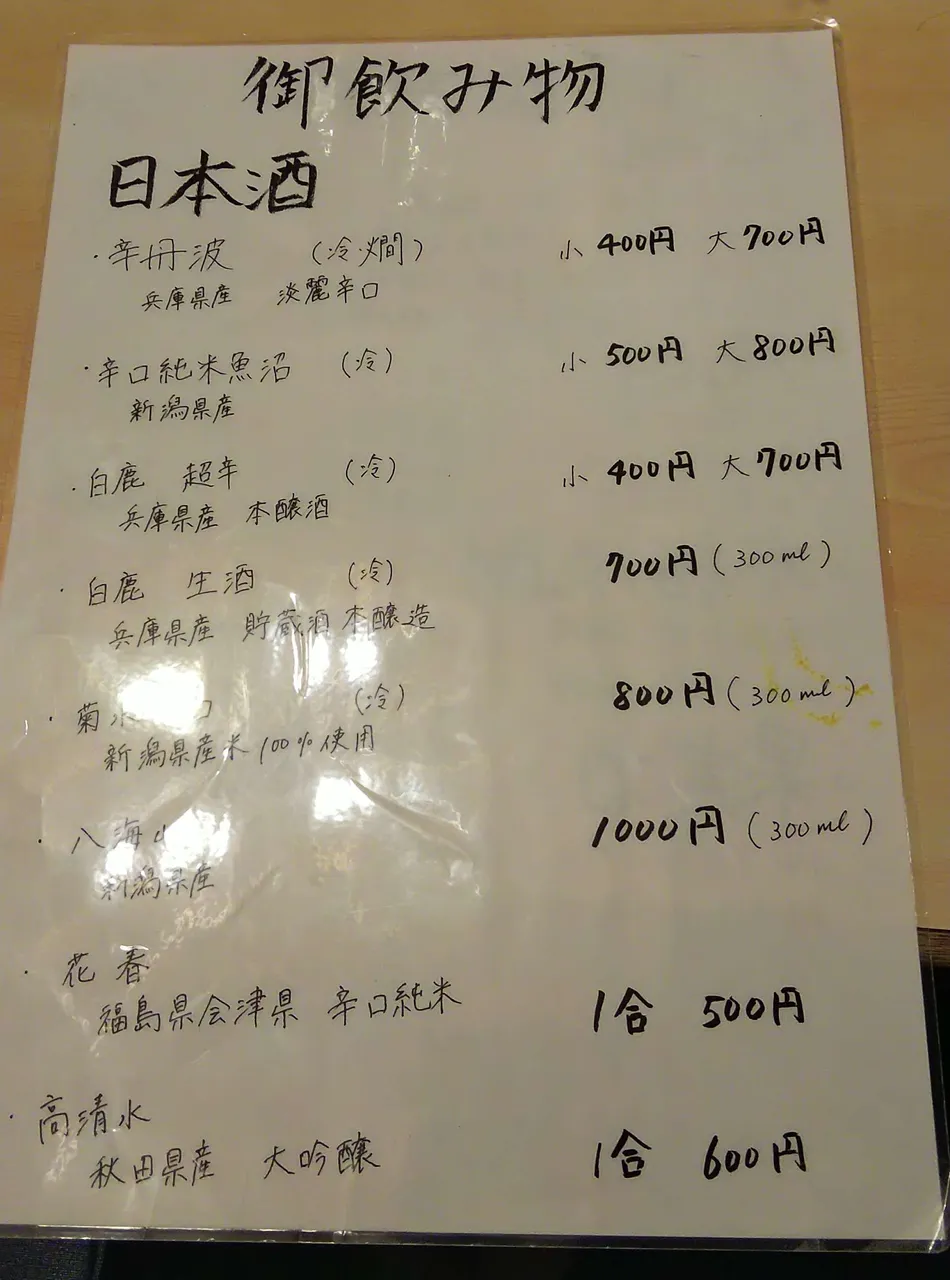 御飲み物
日本酒
・辛丹波 (冷・燗) 小 400円 大 700円
兵庫県産 淡麗辛口
・辛口純米魚沼 (冷) 小 500円 大 800円
新潟県産
・白鹿 超辛 (冷) 小 400円 大 700円
兵庫県産 本醸酒
・白鹿 生酒 (冷) 700円 (300ml)
兵庫県産 貯蔵酒 本醸造
・菊水 口 (冷) 800円 (300ml)
新潟県産米100%使用
・八海山 1000円 (300ml)
新潟県産
・花春
福島県会津県 辛口純米 1合 500円
・高清水
秋田県産 大吟醸 1合 600円